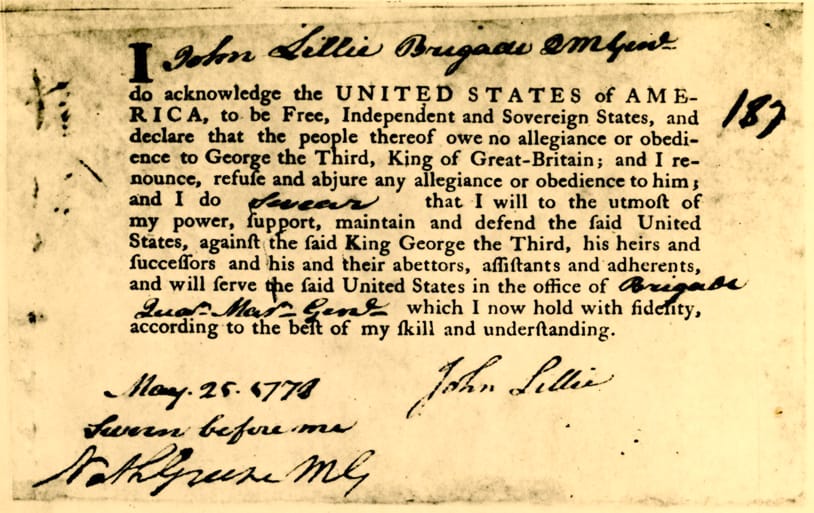 I John Lillie Brigade QMGenl
do acknowledge the UNITED STATES of AME-
RICA, to be Free, Independent and Sovereign States, and
declare that the people thereof owe no allegiance or obedi-
ence to George the Third, King of Great-Britain; and I re-
nounce, refuſe and abjure any allegiance or obedience to him;
and I do swear that I will to the utmoſt of
my power, ſupport, maintain and defend the ſaid United
States, againſt the ſaid King George the Third, his heirs and
ſucceſſors and his and their abettors, aſſiſtants and adherents,
and will ſerve the ſaid United States in the office of Brigade
Quar. Mas. Genl which I now hold with fidelity,
according to the beſt of my ſkill and underſtanding.
187
May. 25. 1778 John Lillie
Sworn before me
NathGreene MG